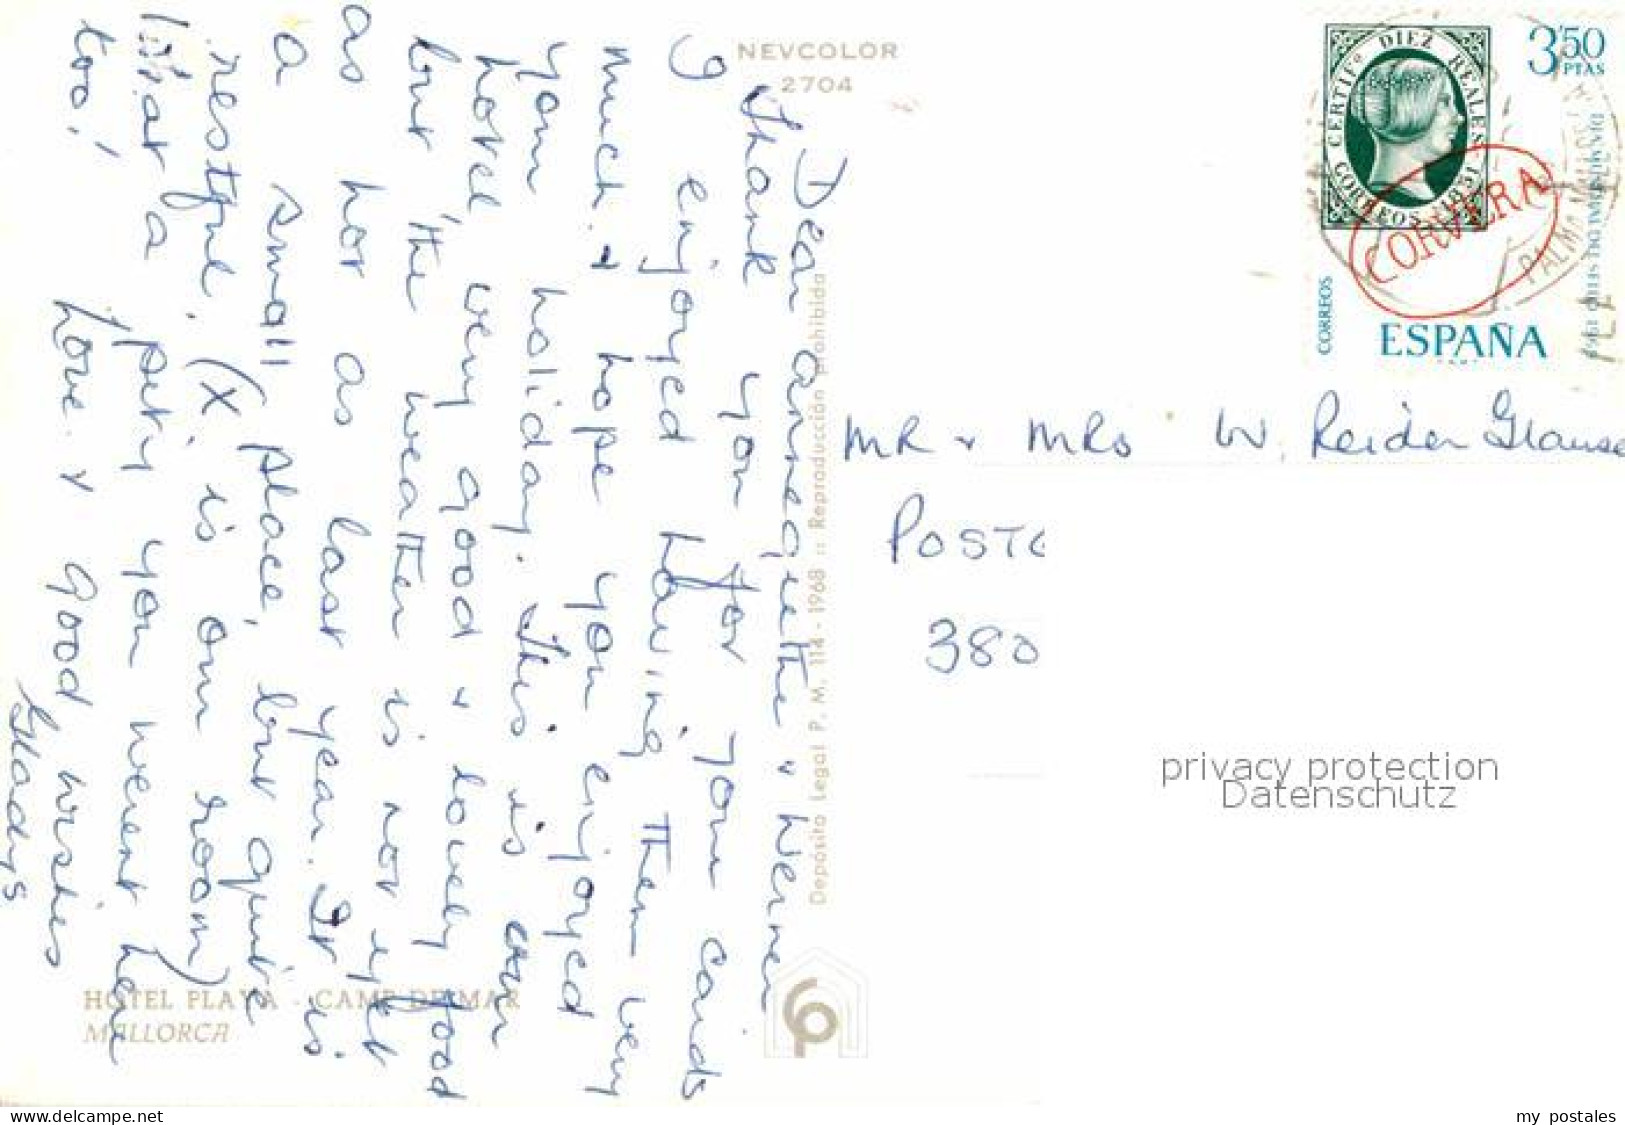 NEVCOLOR
2704
Dear Anneguitte & Werner
Thank you for your cards
I enjoyed having them very
much & hope you enjoyed
your holiday. This is our
hotel, very good & lovely food
but the weather is not yet
as hot as last year. It is
a small place, but quite
restful. (X is our room)
What a pity you weren't here
too!
Love & good wishes
Gladys
HOTEL PLAYA - CAMP DE MAR
MALLORCA
Depósito Legal P. M. 114 - 1968 :: Reproducción prohibida
CP
CERTIFº DIEZ REALES
CORREOS 1851
3'50
PTAS
DIA MUNDIAL DEL SELLO 1968
CORREOS
ESPAÑA
CORVERA
PALMA
MR & MRS W. Reider Glause
POSTE
380
privacy protection
Datenschutz
www.delcampe.net
my postales